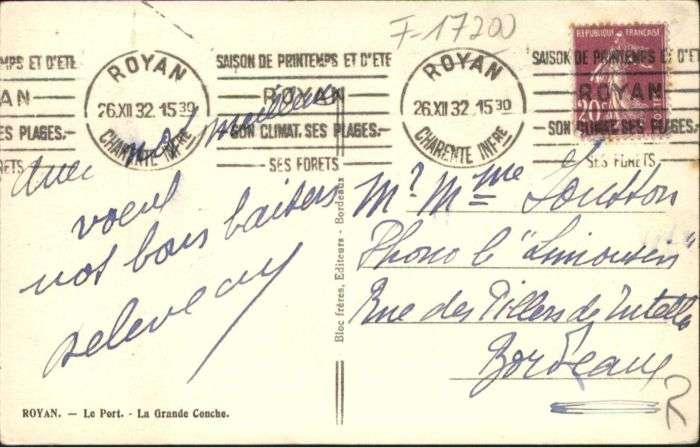 F-17200
MPS ET D'ETE
AN
ES PLAGES.-
RETS
ROYAN
26.XII 32. 15 30
CHARENTE INFRE
SAISON DE PRINTEMPS ET D'ETE
ROYAN
SON CLIMAT, SES PLAGES.-
SES FORETS
ROYAN
26.XII 32. 15 30
CHARENTE INFRE
SAISON DE PRINTEMPS ET D'ETE
ROYAN
SON CLIMAT, SES PLAGES.-
SES FORETS
REPUBLIQUE FRANÇAISE
20c
Avec nos meilleurs
voeux
nos bons baisers
Mr & Mme
Phono le "Limousin"
Rue des Pillers de Tutelle
Bordeaux
R
Bloc frères, Editeurs - Bordeaux
ROYAN. - Le Port. - La Grande Conche.